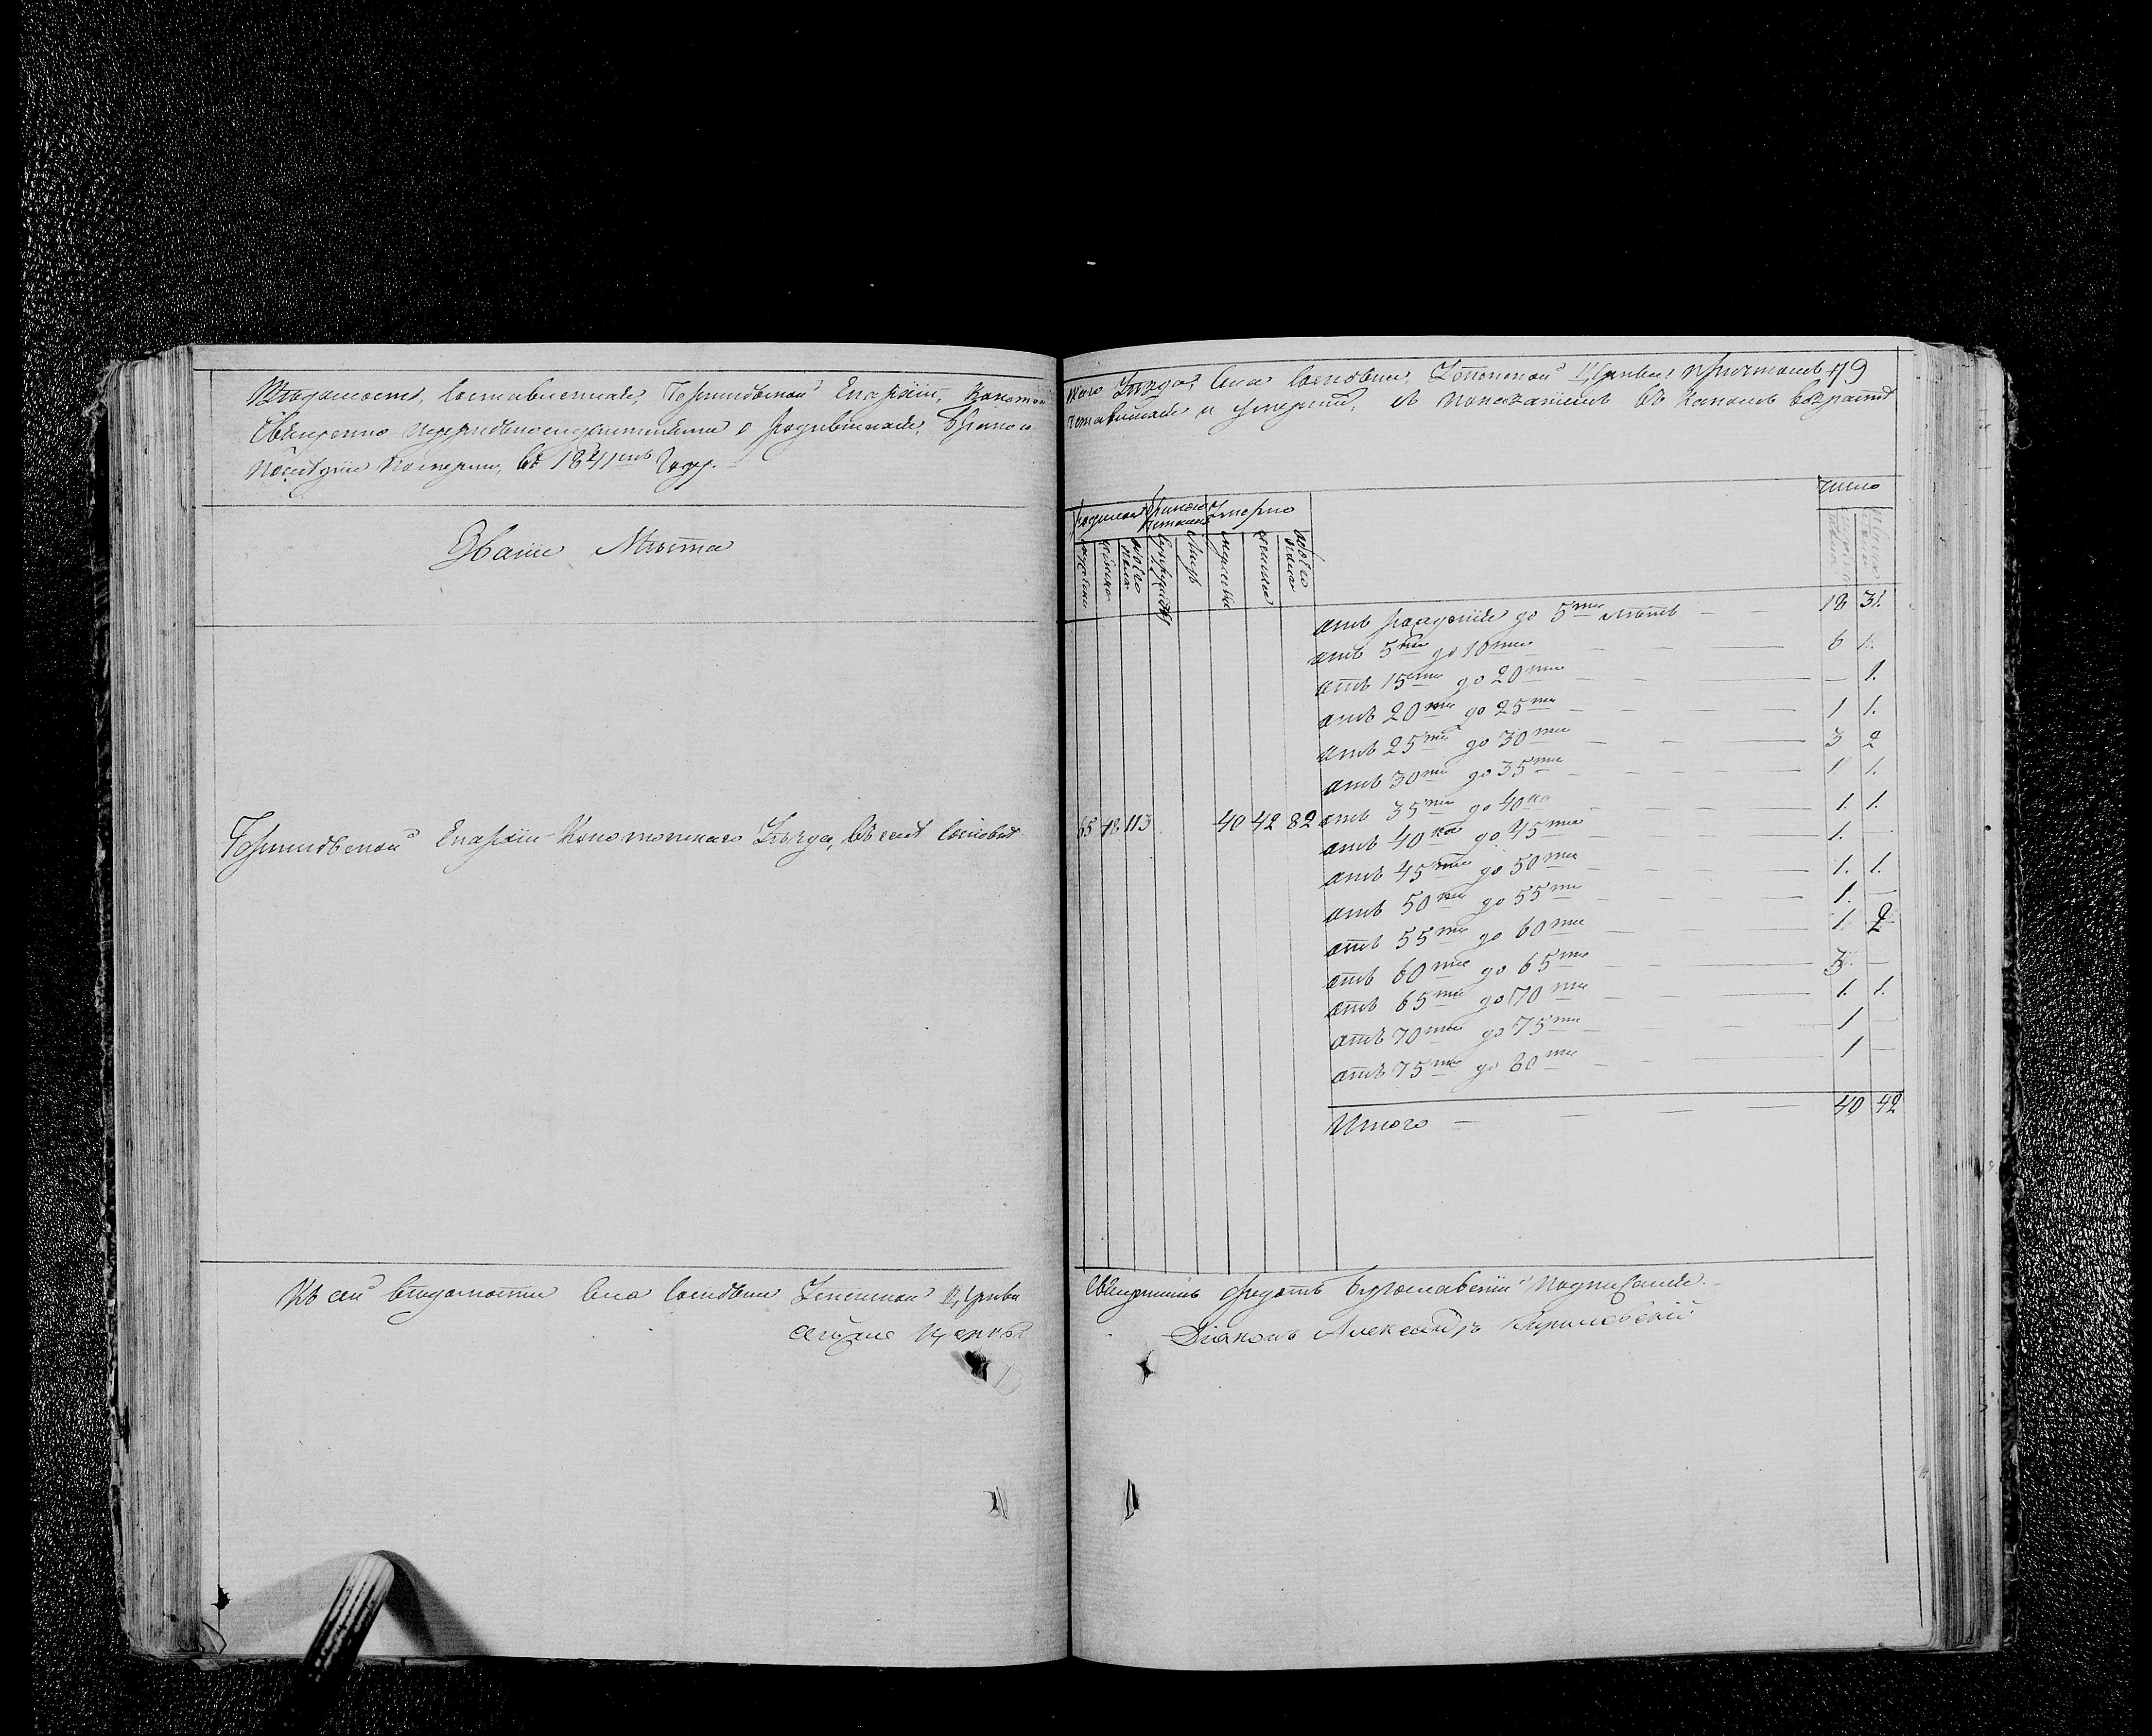 Вѣдомость, составленная, Черниговской Епархіи, Коното
Священно церковнослужителями о родившихся, брако со
постдніе Потерпи, въ 1841мъ Году.
Званіе Мѣста
Черниговской Епархіи Конотопскаго Уѣзда, въ селѣ Сосновкѣ
Къ сей вѣдомости села Сосновки Успенской Церкви
сейже Церкви
скаго Уѣзда, села Сосновки, Успенской Церкви причтомъ 79
четавшихся и умершихъ, съ показаніемъ въ какомъ возрастѣ
родилось
бракомъ четались
Умерло
число
мужеска
женска
обоего пола
мужеска
женска
обоего пола
65 48 113 40 42 82
отъ рожденія до 5ти лѣтъ — — 18 31.
отъ 5ти до 10ти — — 6 1.
отъ 15ти до 20ти — — — 1.
отъ 20ти до 25ти — — 1 1.
отъ 25ти до 30ти — — 3 2
отъ 30ти до 35ти — — 1 1.
отъ 35ти до 40ка — — 1. 1.
отъ 40ка до 45ти — — 1. —
отъ 45ти до 50ти — — 1. 1.
отъ 50ти до 55ти — — 1. —
отъ 55ти до 60ти — — 1 2
отъ 60ти до 65ти — — 3. —
отъ 65ти до 70ти — — 1. 1.
отъ 70ти до 75ти — — 1 —
отъ 75ти до 80ти — — 1 —
Итого — — 40 42
Священникъ Федотъ Подписался.
Діаконъ Александръ Кириловскій